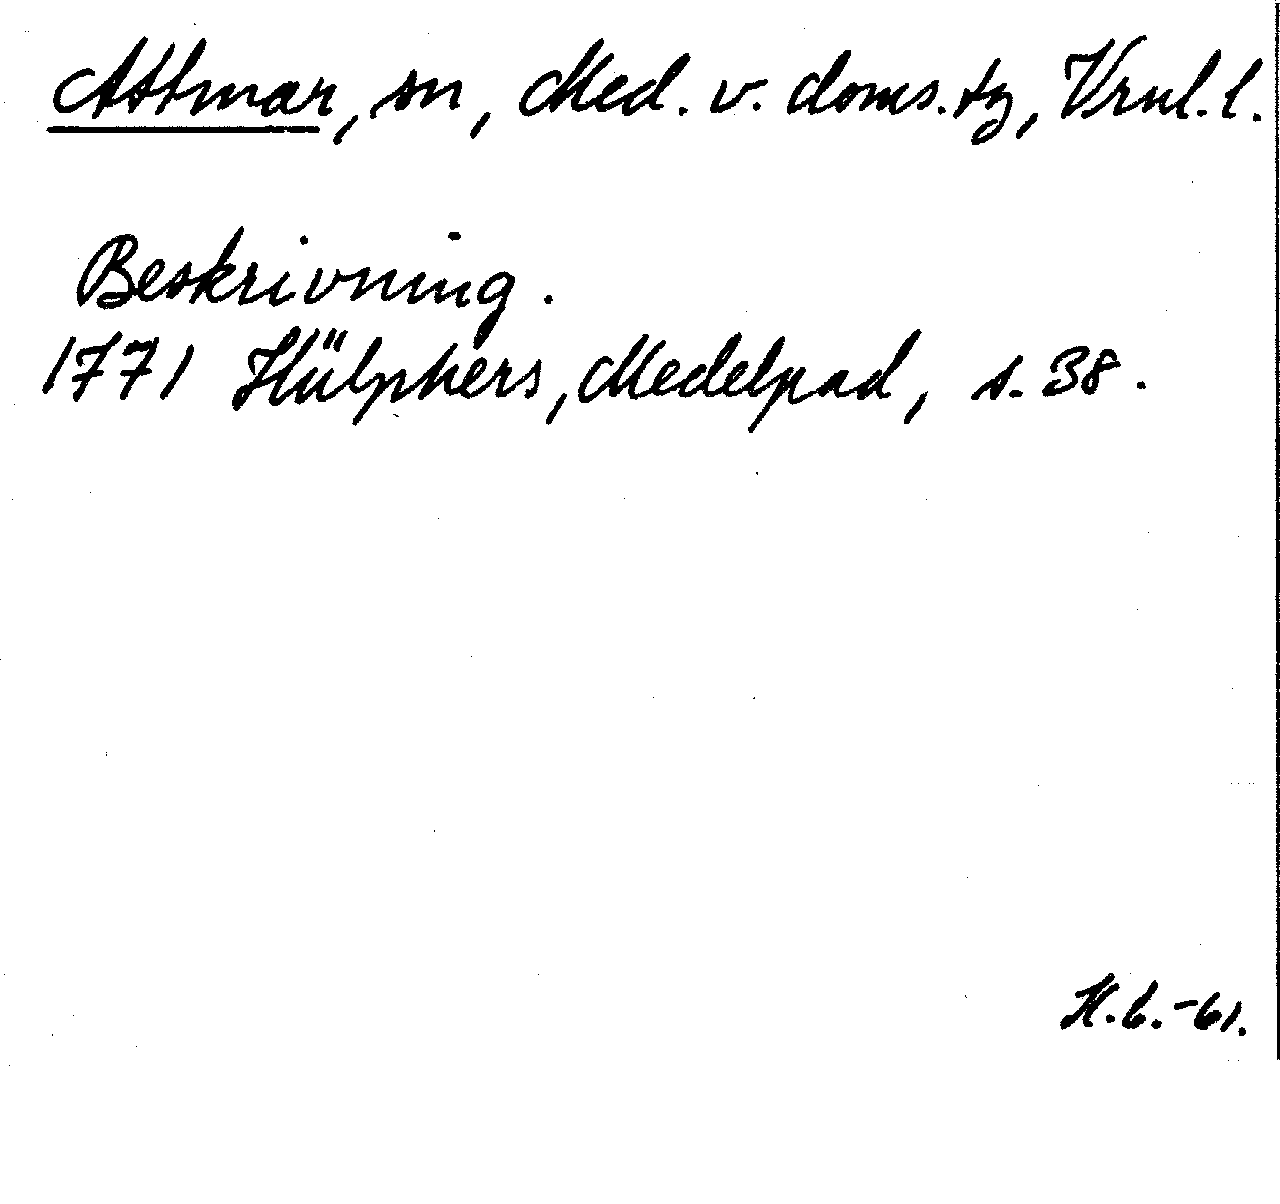 Attmar, sn, Med. v. doms. tg, Vrnl. l.
Beskrivning.
1771 Hülphers, Medelpad, s. 38.
H.b.-61.